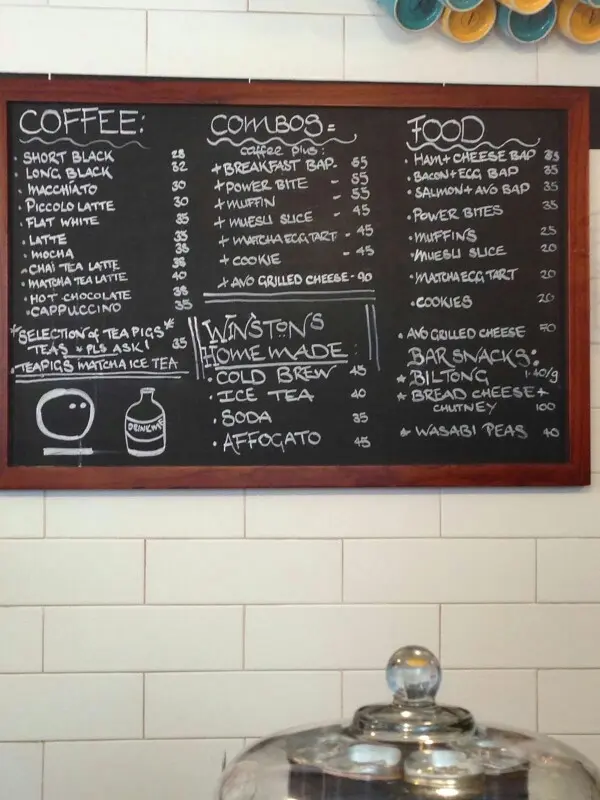 COFFEE:
· SHORT BLACK 28
· LONG BLACK 32
· MACCHIATO 30
· PICCOLO LATTE 30
· FLAT WHITE 35
· LATTE 35
· MOCHA 38
· CHAI TEA LATTE 38
· MATCHA TEA LATTE 40
· HOT CHOCOLATE 38
· CAPPUCCINO 35
*SELECTION of TEA PIGS*
TEAS * PLS ASK! 35
· TEAPIGS MATCHA ICE TEA
DRINK ME
COMBOS=
coffee plus:
+ BREAKFAST BAP - 55
+ POWER BITE - 55
+ MUFFIN - 55
+ MUESLI SLICE - 45
+ MATCHA EGG TART - 45
+ COOKIE - 45
+ AVO GRILLED CHEESE - 90
WINSTONS
HOME MADE:
· COLD BREW 45
· ICE TEA 40
· SODA 35
· AFFOGATO 45
FOOD
· HAM + CHEESE BAP 35
· BACON + EGG BAP 35
· SALMON + AVO BAP 35
· POWER BITES 35
· MUFFINS 25
· MUESLI SLICE 20
· MATCHA EGG TART 20
· COOKIES 20
· AVO GRILLED CHEESE 70
BAR SNACKS:
* BILTONG 1.40/g
* BREAD CHEESE +
CHUTNEY 100
* WASABI PEAS 40